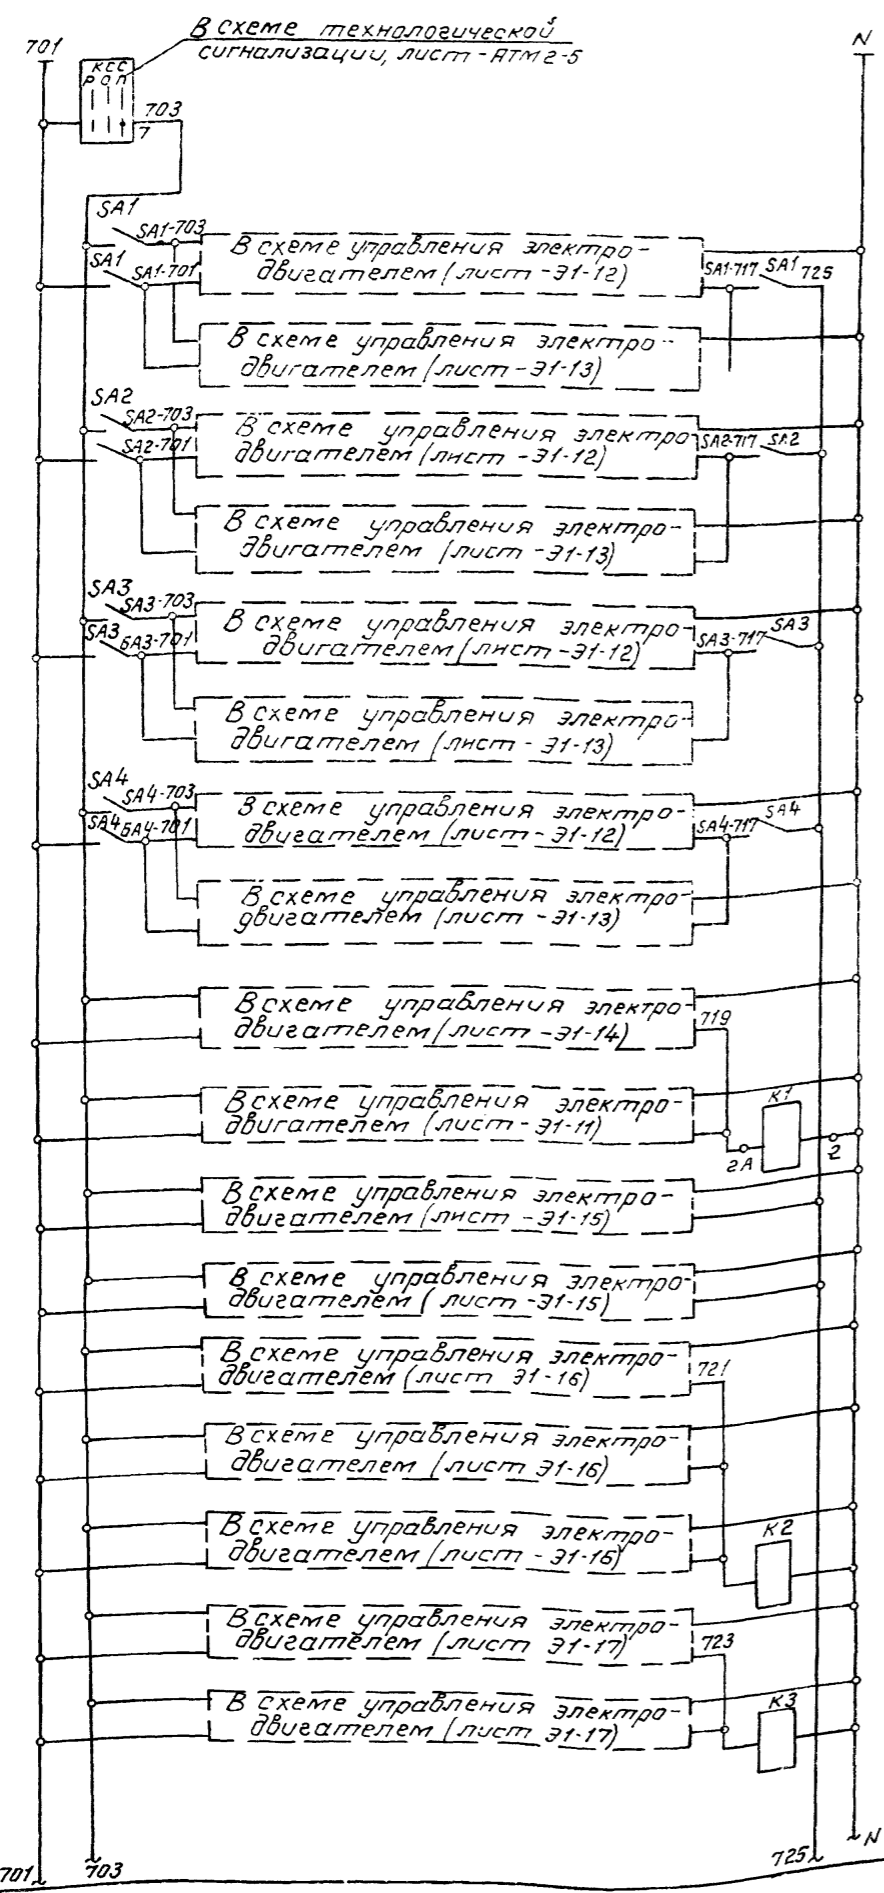 В схеме технологической
сигнализации, лист -АТМ2-5
701
N
КСС
Р О П
703
7
SA1
SA1-703
В схеме управления электро-
двигателем (лист -Э1-12)
SA1
SA1-701
SA1-717
SA1
725
В схеме управления электро-
двигателем (лист -Э1-13)
SA2
SA2-703
В схеме управления электро-
двигателем (лист -Э1-12)
SA2-701
SA2-717
SA2
В схеме управления электро-
двигателем (лист -Э1-13)
SA3
SA3-703
В схеме управления электро-
двигателем (лист -Э1-12)
SA3
SA3-701
SA3-717
SA3
В схеме управления электро-
двигателем (лист -Э1-13)
SA4
SA4-703
В схеме управления электро-
двигателем (лист -Э1-12)
SA4
SA4-701
SA4-717
SA4
В схеме управления электро-
двигателем (лист -Э1-13)
В схеме управления электро-
двигателем (лист -Э1-14)
719
В схеме управления электро-
двигателем (лист -Э1-11)
К1
2А
2
В схеме управления электро-
двигателем (лист -Э1-15)
В схеме управления электро-
двигателем (лист -Э1-15)
В схеме управления электро-
двигателем (лист Э1-16)
721
В схеме управления электро-
двигателем (лист Э1-16)
В схеме управления электро-
двигателем (лист -Э1-16)
К2
В схеме управления электро-
двигателем (лист Э1-17)
723
В схеме управления электро-
двигателем (лист Э1-17)
К3
701
703
725
N